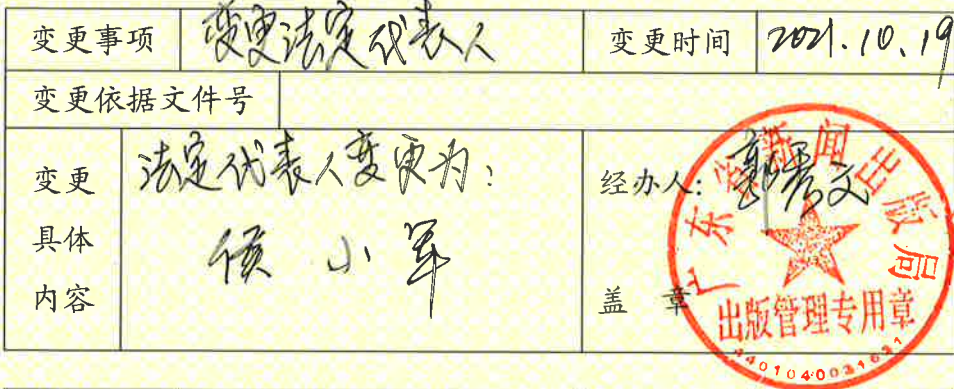 变更事项 变更法定代表人 变更时间 2021.10.19
变更依据文件号
变更具体内容
法定代表人变更为:
侯小军
经办人:
盖章
广东省新闻出版局
出版管理专用章